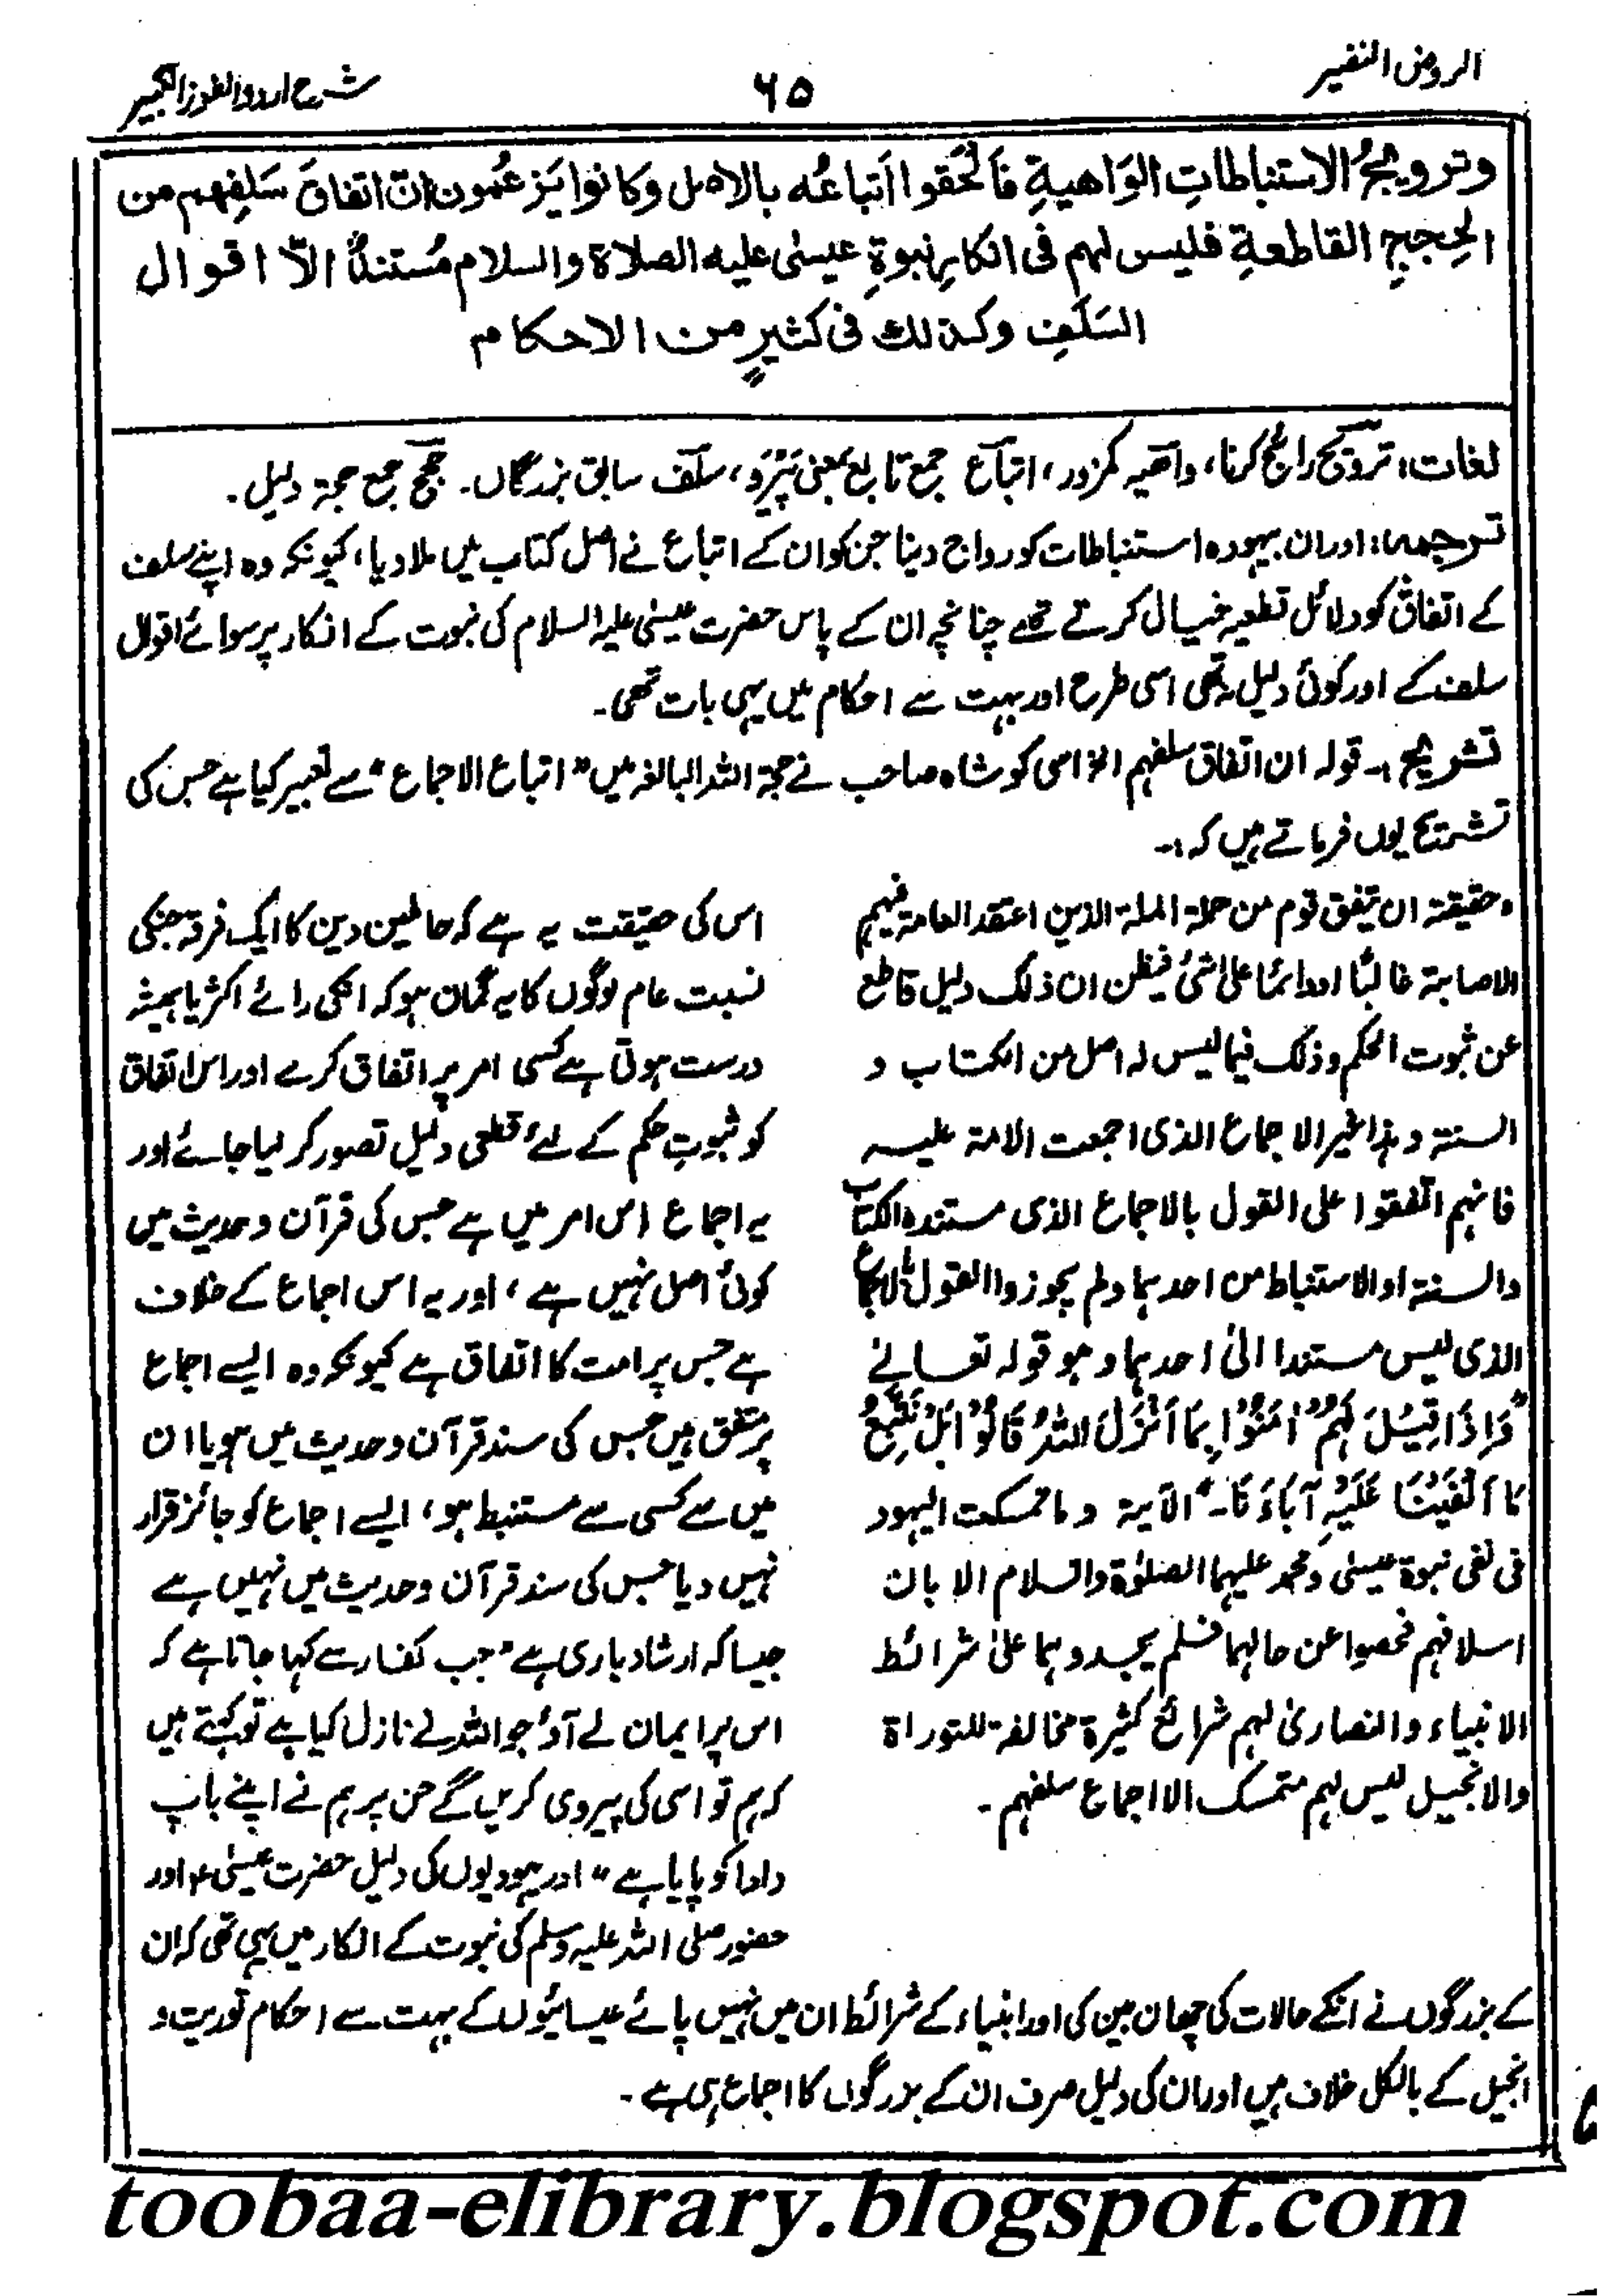 الروض النضير
۶۵
شرح اردو الفوز الکبیر
وترويجُ الاستنباطاتِ الوَاهيةِ فَالحَقوا اَتباعُه بالاصل وكانوا يَزعُمون انّ اتفاقَ سَلفِهم من
الحِججِ القاطعةِ فليس لهم فى انكارِ نبوةِ عيسىٰ عليه الصلاة والسلام مُستندٌ الاّ اقوال
السَلَفِ وكذلك فى كثيرٍ من الاحكام
لغات: ترویج رائج کرنا، واھیہ کمزور، اتباع جمع تابع بمعنی پَیْرَو، سلف سابق بزرگاں۔ حجج جمع حجۃ دلیل۔
ترجمہ: اور ان بیہودہ استنباطات کو رواج دینا جن کو ان کے اتباع نے اصل کتاب میں ملا دیا، کیونکہ وہ اپنے سلف
کے اتفاق کو دلائل قطعیہ خیال کرتے تھے چنانچہ ان کے پاس حضرت عیسیٰ علیہ السلام کی نبوت کے انکار پر سوائے اقوال
سلف کے اور کوئی دلیل نہ تھی اسی طرح اور بہت سے احکام میں یہی بات تھی۔
تشریح :۔ قولہ ان اتفاق سلفہم الخ اسی کو شاہ صاحب نے حجۃ اللہ البالغہ میں "اتباع الاجماع" سے تعبیر کیا ہے جس کی
تشریح یوں فرماتے ہیں کہ :۔
وحقیقتہ ان یتفق قوم من حملۃ الملۃ الذین اعتقد العامۃ فیہم
الاصابۃ غالبًا او دائما علی شئ فیظن ان ذلک دلیل قاطع
عن ثبوت الحکم وذلک فیما لیس لہ اصل من الکتاب و
السنۃ وہذا غیر الاجماع الذی اجمعت الامۃ علیہ
فانہم اتفقوا علی القول بالاجماع الذی مستندہ الکتاب
والسنۃ او الاستنباط من احدہما ولم یجوزوا القول بالاجماع
الذی لیس مستندا الیٰ احدہما وہو قولہ تعالےٰ
"وَاِذَا قِیْلَ لَہُمْ اٰمَنُوْا بِمَا اَنْزَلَ اللہُ قَالُوْا بَلْ نَتَّبِعُ
مَا اَلْفَیْنَا عَلَیْہِ آبَاءَنَا۔" الآیۃ وما تمسکت الیہود
فی نفی نبوۃ عیسیٰ ومحمد علیہما الصلوٰۃ والسلام الا بان
اسلافہم فحصوا عن حالہما فلم یجدوہما علیٰ شرائط
الانبیاء والنصاریٰ لہم شرائع کثیرۃ مخالفۃ للتوراۃ
والانجیل لیس لہم متمسک الا اجماع سلفہم۔
اس کی حقیقت یہ ہے کہ حاملین دین کا ایک فرقہ جنکی
نسبت عام لوگوں کا یہ گمان ہو کہ انکی رائے اکثر یا ہمیشہ
درست ہوتی ہے کسی امر پر اتفاق کرے اور اس اتفاق
کو ثبوتِ حکم کے لئے قطعی دلیل تصور کر لیا جائے اور
یہ اجماع اس امر میں ہے جس کی قرآن وحدیث میں
کوئی اصل نہیں ہے، اور یہ اس اجماع کے خلاف
ہے جس پر امت کا اتفاق ہے کیونکہ وہ ایسے اجماع
پر متفق ہیں جس کی سند قرآن وحدیث میں ہو یا ان
میں سے کسی سے مستنبط ہو، ایسے اجماع کو جائز قرار
نہیں دیا جس کی سند قرآن وحدیث میں نہیں ہے
جیسا کہ ارشاد باری ہے "جب کفار سے کہا جاتا ہے کہ
اس پر ایمان لے آؤ جو اللہ نے نازل کیا ہے تو کہتے ہیں
کہ ہم تو اسی کی پیروی کریں گے جن پر ہم نے اپنے باپ
دادا کو پایا ہے" اور یہودیوں کی دلیل حضرت عیسیٰؑ اور
حضور صلی اللہ علیہ وسلم کی نبوت کے انکار میں یہی تھی کہ ان
کے بزرگوں نے انکے حالات کی چھان بین کی اور انبیاء کے شرائط ان میں نہیں پائے عیسائیوں کے بہت سے احکام توریت و
انجیل کے بالکل خلاف ہیں اور ان کی دلیل صرف ان کے بزرگوں کا اجماع ہی ہے۔
toobaa-elibrary.blogspot.com